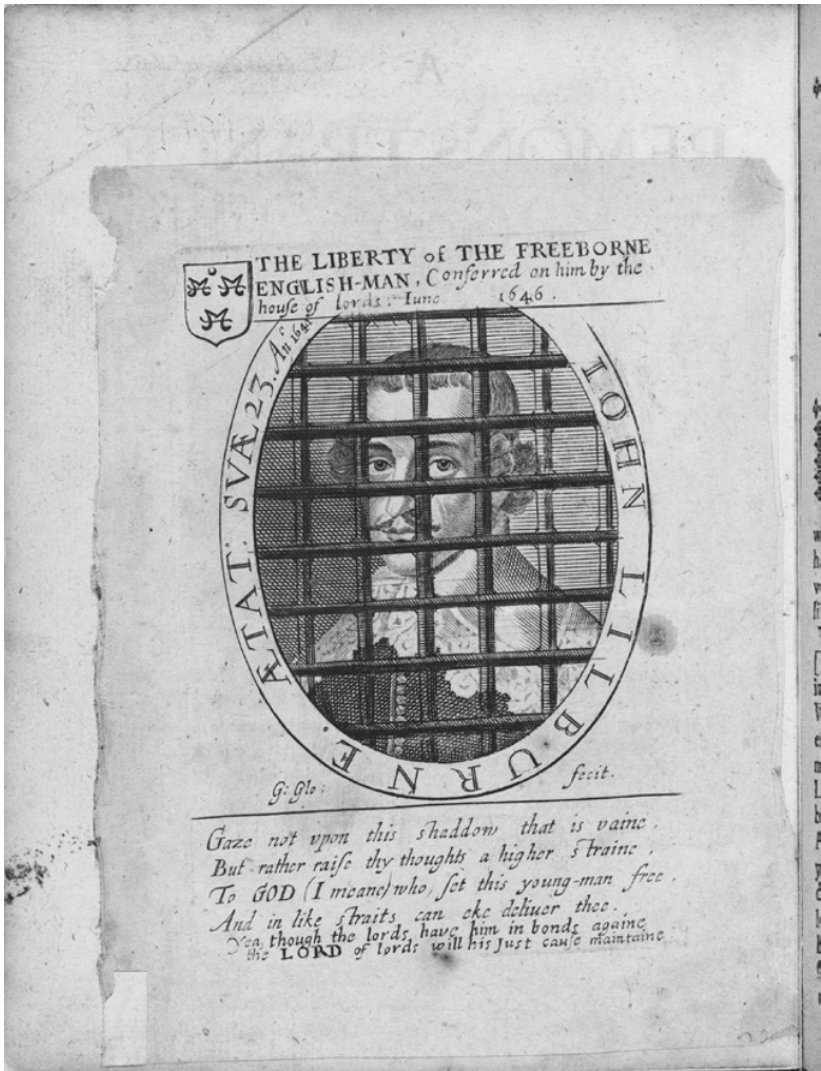 THE LIBERTY of THE FREEBORNE
ENGLISH-MAN, Conferred on him by the
house of lords: Iune 1646.
ÆTAT: SVÆ 23. Añ 1641
IOHN LILBURNE.
G: Glo: fecit.
Gaze not vpon this shaddow that is vaine,
But rather raise thy thoughts a higher straine,
To GOD (I meane) who, set this young-man free,
And in like straits can eke deliuer thee.
Yea though the lords, have him in bonds againe
the LORD of lords will his Just cause maintaine